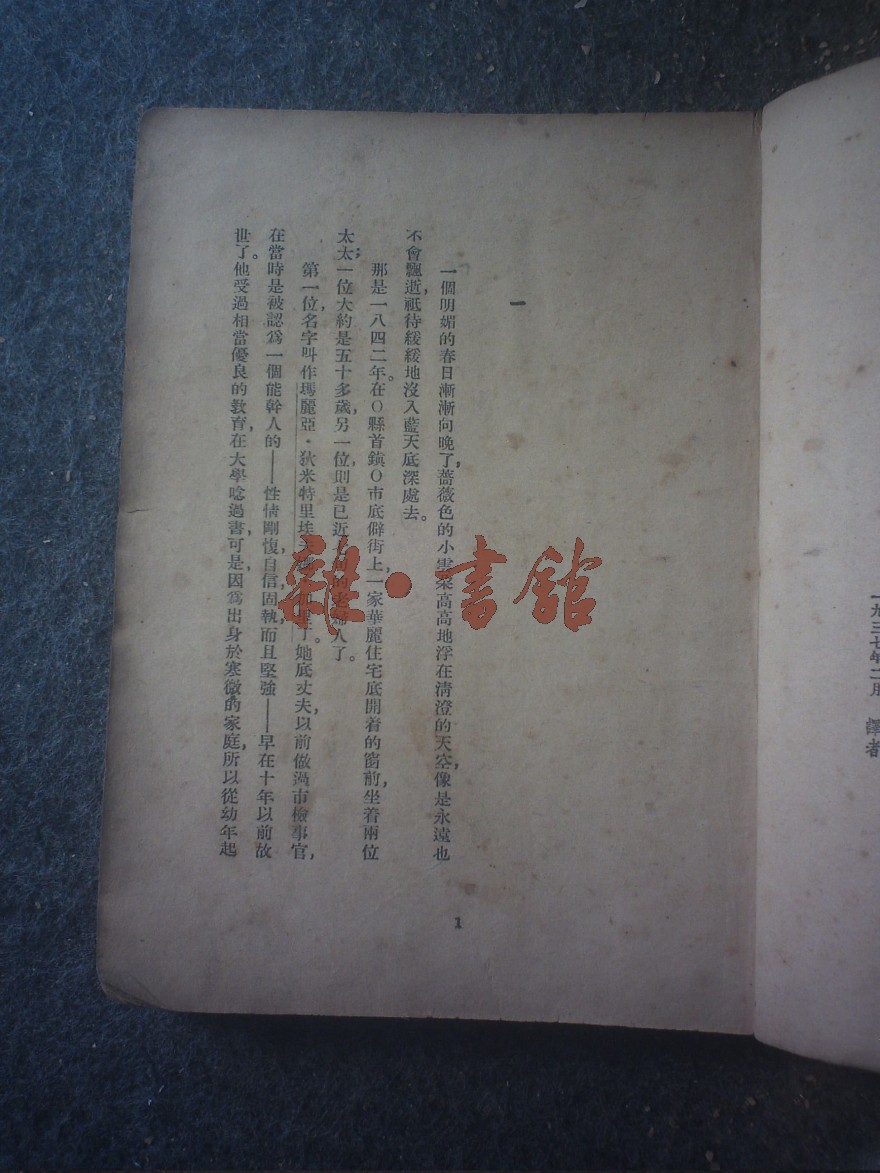 一九三七年二月　譯者
一
一個明媚的春日漸漸向晚了，薔薇色的小雲高高地浮在清澄的天空，像是永遠也
不會飄逝，祗待緩緩地沒入藍天底深處去。
那是一八四二年。在O縣首鎮O市底僻街上，一家華麗住宅底開着的窗前，坐着兩位
太太；一位大約是五十多歲，另一位，則是已近七旬的老婦人了。
第一位，名字叫作瑪麗亞・狄米特里埃夫里丁。她底丈夫，以前做過市檢事官，
在當時是被認爲一個能幹人的——性情剛愎，自信，固執，而且堅強——早在十年以前故
世了。他受過相當優良的教育，在大學唸過書，可是，因爲出身於寒微的家庭，所以從幼年起
1
雜・書館